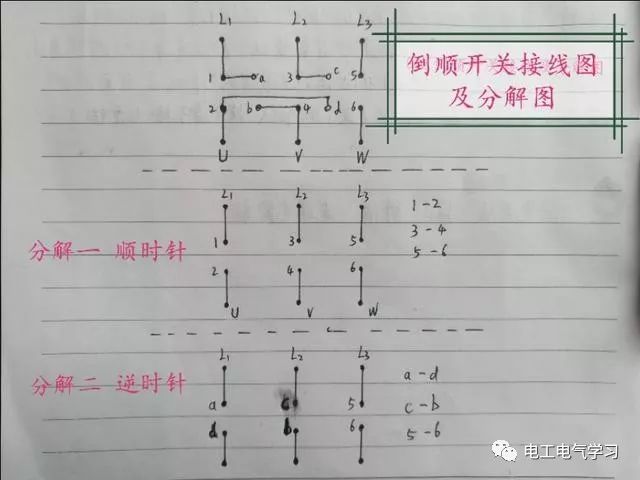 L1 L2 L3
倒顺开关接线图
及分解图
1 a 3 c 5
2 b 4 d 6
U V W
L1 L2 L3
1-2
3-4
5-6
分解一 顺时针
1 3 5
2 4 6
U V W
L1 L2 L3
分解二 逆时针
a-d
c-b
5-6
a c 5
d b 6
电工电气学习